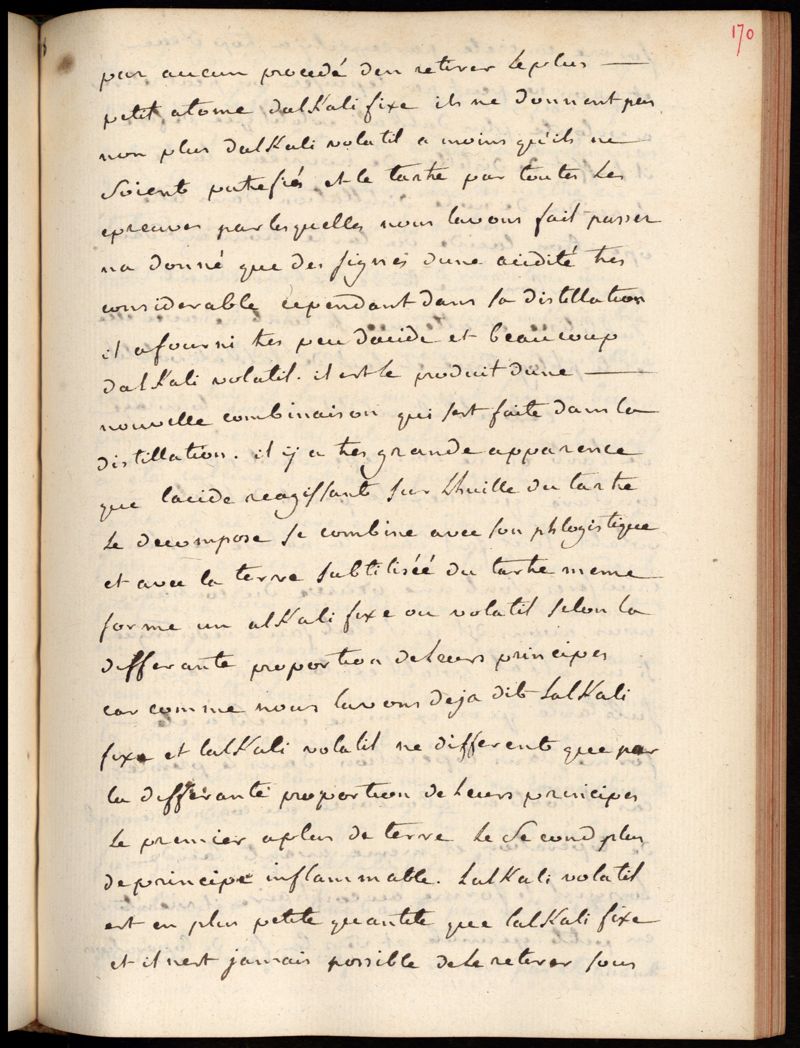 170
par aucun procedé den retirer le plus —
petit atome dalKali fixe ils ne donnent pas
non plus dalKali volatil a moins qu'ils ne
soient putrefiés et le tartre par toutes les
epreuves par lesquelles nous lavons fait passer
na donné que des signes dune acidité tres
considerable cependant dans sa distillation
il a fourni tres peu dacide et beaucoup
dalKali volatil. il est le produit dune —
nouvelle combinaison qui sest faite dans la
distillation. il ÿ a tres grande apparence
que lacide reagissant sur Lhuille du tartre
le decompose se combine avec son phlogistique
et avec la terre subtilisée du tartre meme
forme un alKali fixe ou volatil selon la
differante proportion de leurs principes
car comme nous lavons deja dit LalKali
fixe et lalKali volatil ne different que par
la differante proportion de leurs principes
le premier a plus de terre le second plus
de principe inflammable. LalKali volatil
est en plus petite quantite que lalKali fixe
et il nest jamais possible de le retirer sous